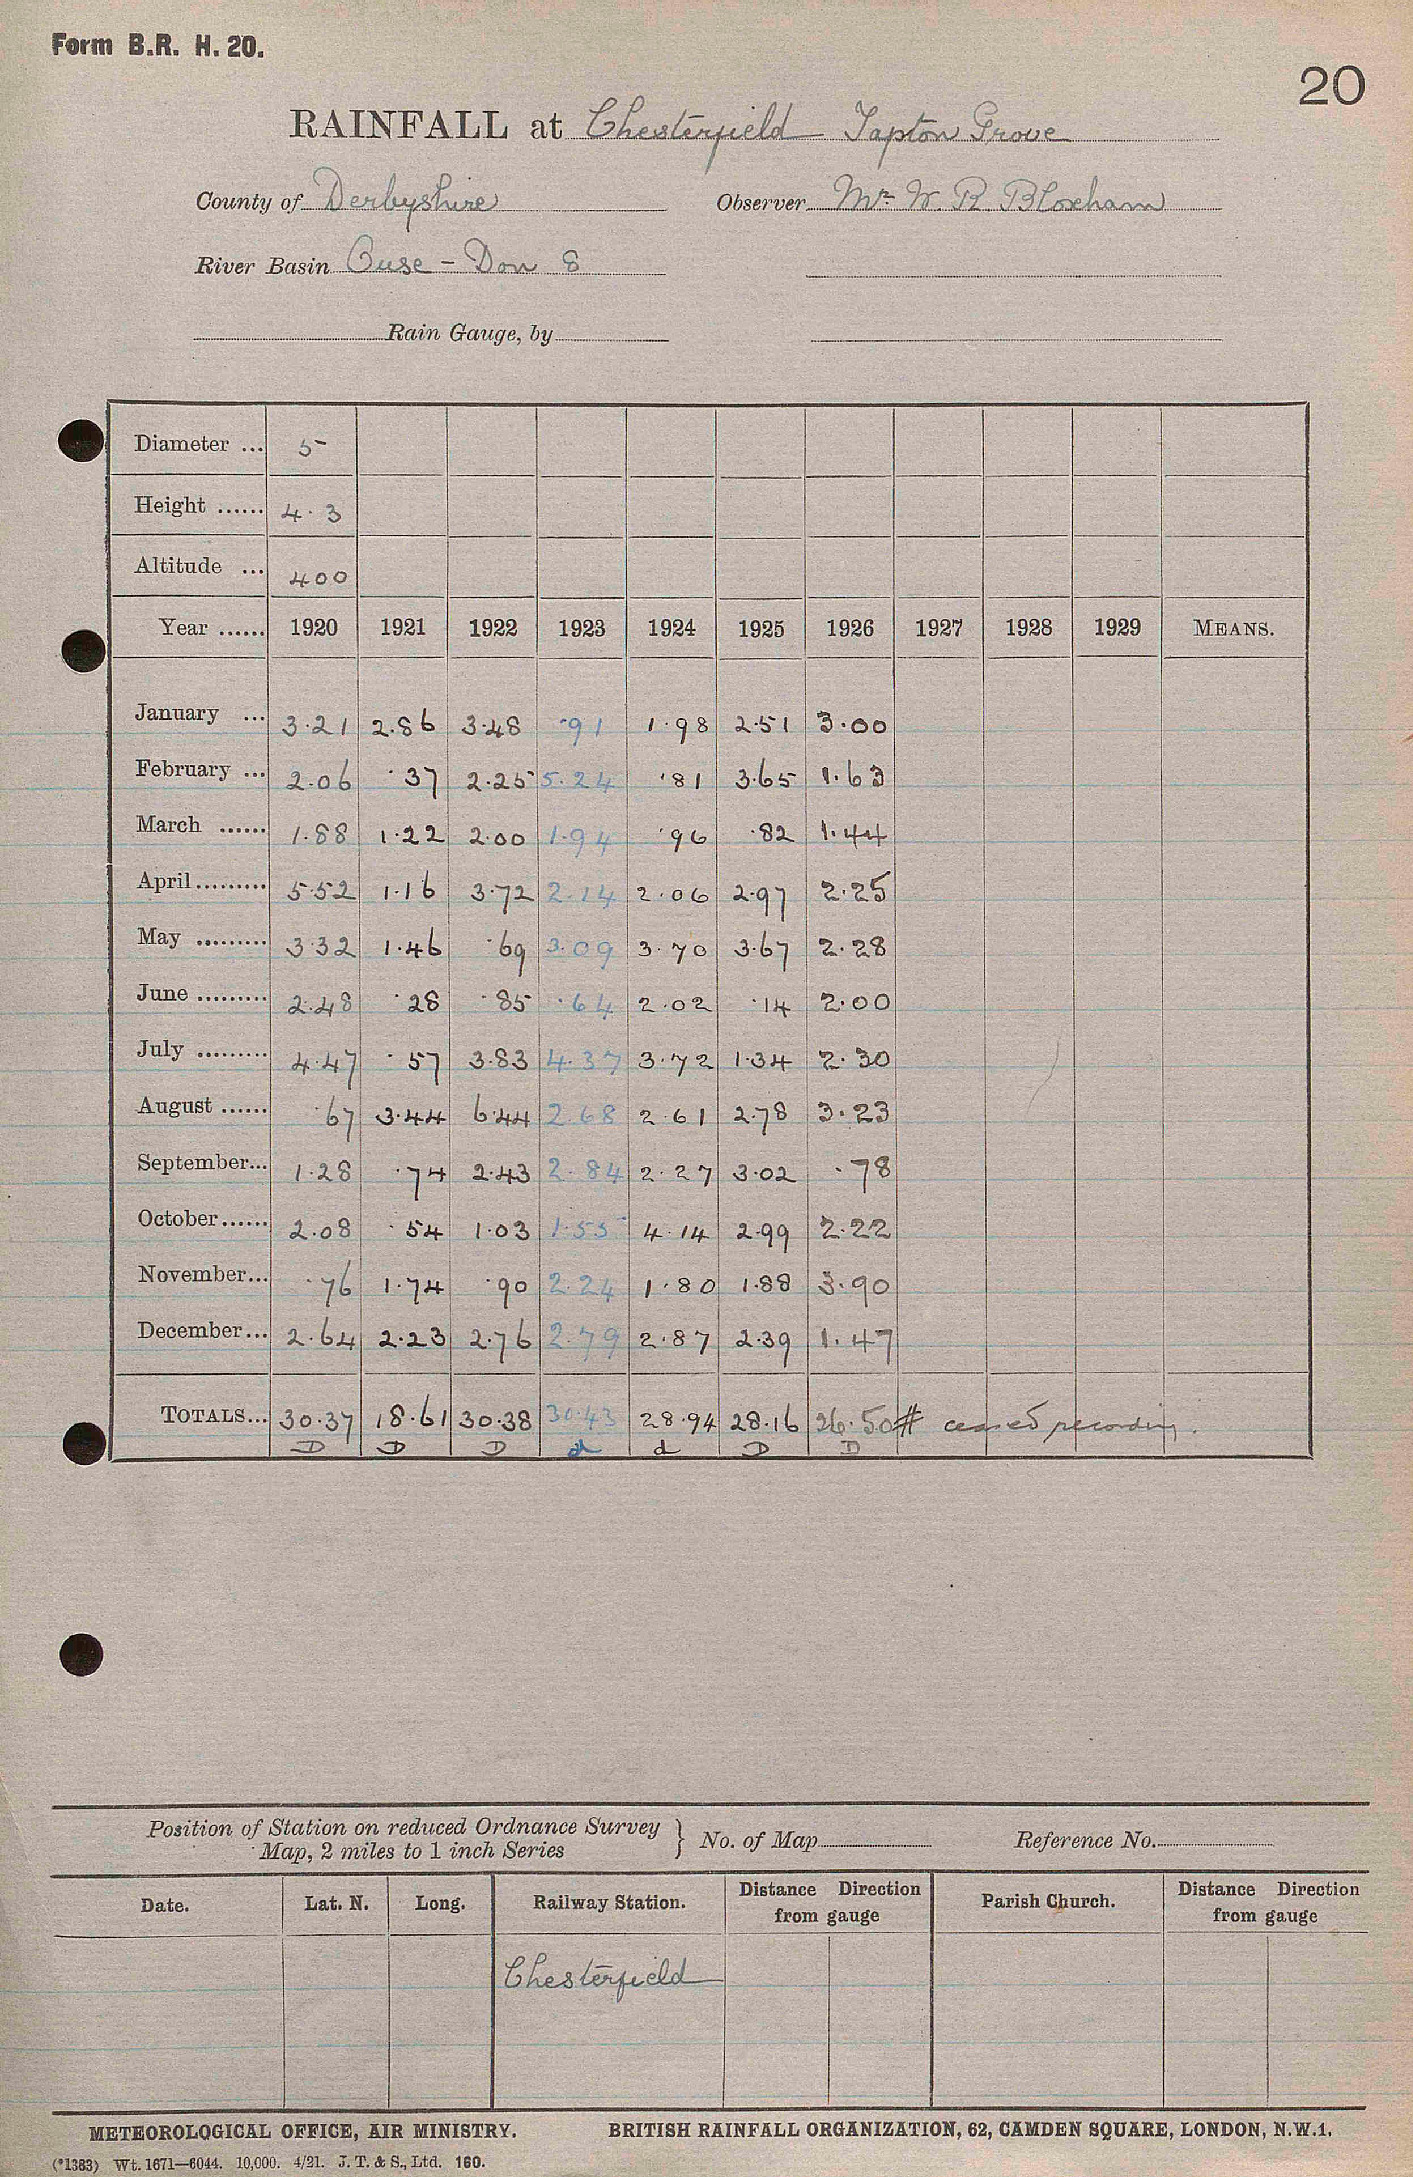 Form B.R. H. 20.
20
RAINFALL at Chesterfield Tapton Grove
County of Derbyshire Observer Mr. W. R. Bloxham
River Basin Ouse - Don 8
Rain Gauge, by
Diameter ... 5
Height ...... 4.3
Altitude ... 400
Year ...... 1920 1921 1922 1923 1924 1925 1926 1927 1928 1929 MEANS.
January ... 3.21 2.86 3.48 .91 1.98 2.51 3.00
February ... 2.06 .37 2.25 5.24 .81 3.65 1.63
March ...... 1.88 1.22 2.00 1.94 .96 .82 1.44
April ......... 5.52 1.16 3.72 2.14 2.06 2.97 2.25
May ......... 3.32 1.46 .69 3.09 3.70 3.67 2.28
June ......... 2.48 .28 .85 .64 2.02 .14 2.00
July ......... 4.47 .57 3.83 4.37 3.72 1.34 2.30
August ...... .67 3.44 6.44 2.68 2.61 2.78 3.23
September... 1.28 .74 2.43 2.84 2.27 3.02 .78
October...... 2.08 .54 1.03 1.55 4.14 2.99 2.22
November... .76 1.74 .90 2.24 1.80 1.88 3.90
December... 2.64 2.23 2.76 2.79 2.87 2.39 1.47
TOTALS... 30.37 18.61 30.38 30.43 28.94 28.16 26.50 # ceased recording.
D D D d d D D
Position of Station on reduced Ordnance Survey
Map, 2 miles to 1 inch Series } No. of Map Reference No.
Date. Lat. N. Long. Railway Station. Distance Direction from gauge Parish Church. Distance Direction from gauge
Chesterfield
METEOROLOGICAL OFFICE, AIR MINISTRY. BRITISH RAINFALL ORGANIZATION, 62, CAMDEN SQUARE, LONDON, N.W.1.
(*1383) Wt. 1671—6044. 10,000. 4/21. J. T. & S., Ltd. 160.